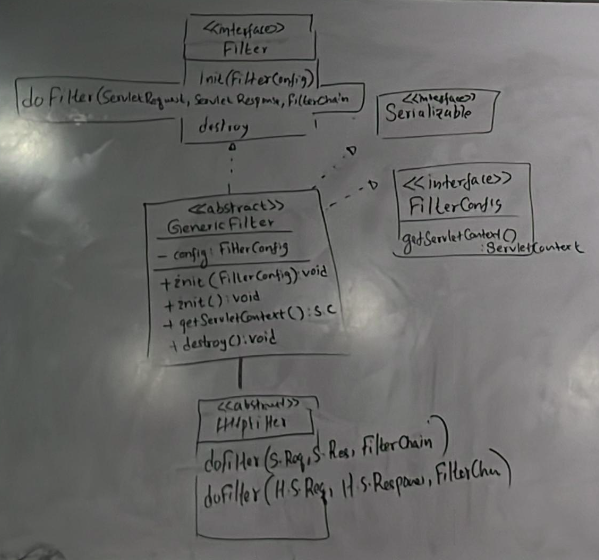 <<interface>>
Filter
init(FilterConfig)
doFilter(ServletRequest, Servlet Response, FilterChain
destroy
<<interface>>
Serializable
<<interface>>
FilterConfig
getServletContext()
:ServletContext
<<abstract>>
GenericFilter
- config: FilterConfig
+init (FilterConfig):void
+init():void
+getServletContext():S.C
+destroy():void
<<abstract>>
HttpFilter
doFilter(S.Req, S.Res, FilterChain)
doFilter(H.S.Req, H.S.Response, FilterChain)